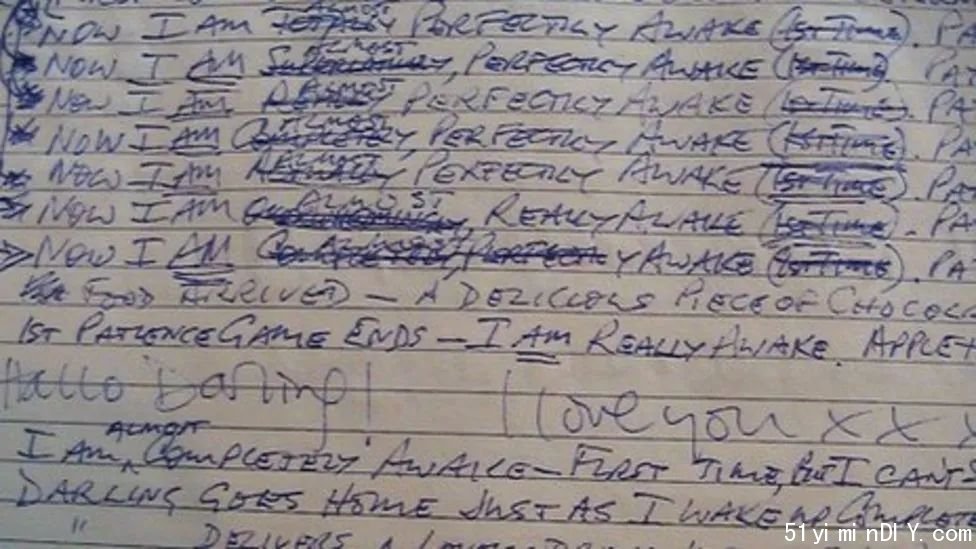 NOW I AM ALMOST TOTALLY PERFECTLY AWAKE (1ST TIME). PA
NOW I AM ALMOST, PERFECTLY AWAKE (1ST TIME). PA
NOW I AM ALMOST PERFECTLY AWAKE (1ST TIME). PA
NOW I AM ALMOST COMPLETELY, PERFECTLY AWAKE (1ST TIME). PA
NOW I AM ALMOST PERFECTLY AWAKE (1ST TIME). PA
NOW I AM ALMOST, REALLY AWAKE (1ST TIME). PA
NOW I AM COMPLETELY, PERFECTLY AWAKE (1ST TIME). PA
FOOD ARRIVED — A DELICIOUS PIECE OF CHOCOL
1ST PATIENCE GAME ENDS — I AM REALLY AWAKE. APPLET
Hallo Darling! I love you x x x
I AM ALMOST COMPLETELY AWAKE — FIRST TIME, BUT I CAN'T
DARLING GOES HOME JUST AS I WAKE UP COMPLETE
" DELIVERS A
51yiminDIY.com